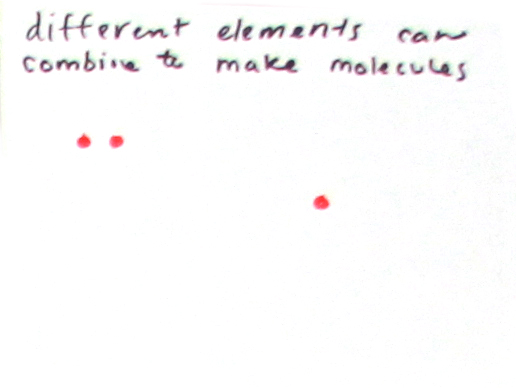 different elements can
combine to make molecules